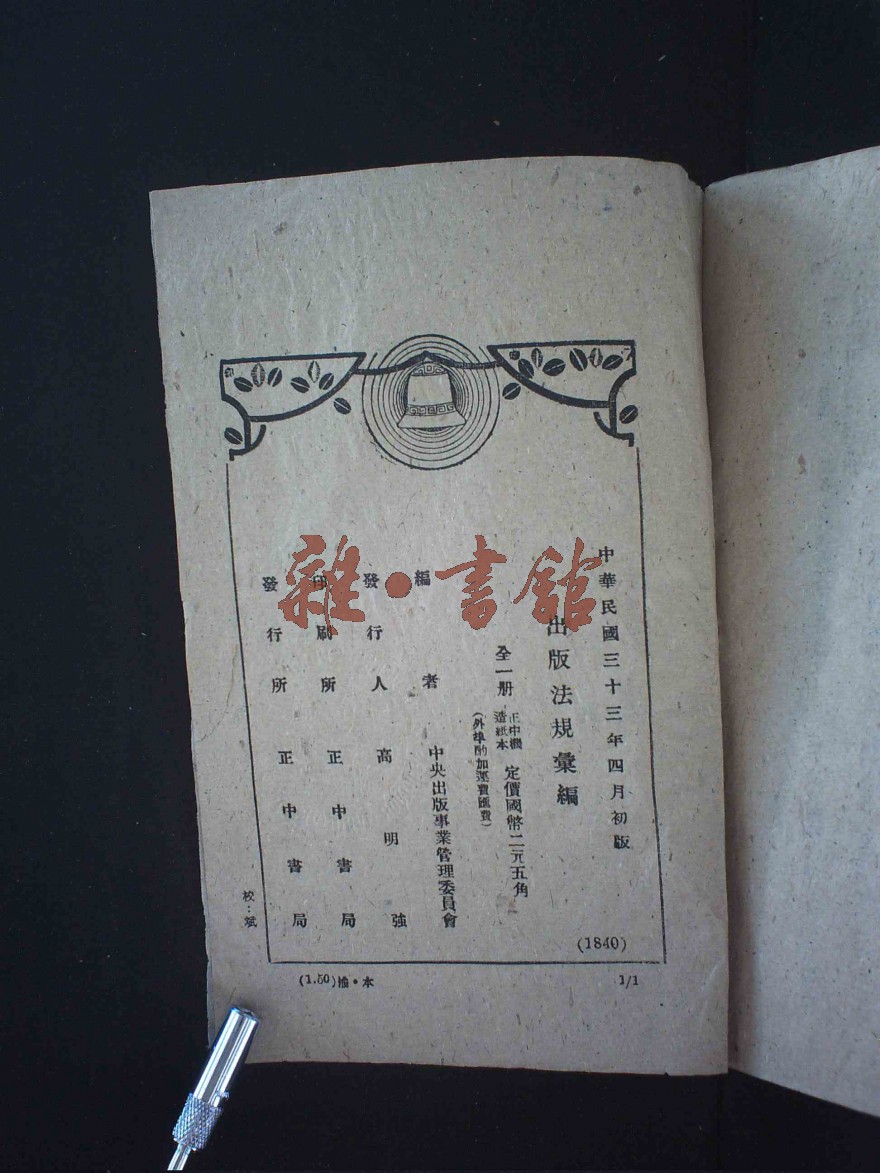 中華民國三十三年四月初版
出版法規彙編
全一册 正中機造紙本 定價國幣二元五角
(外埠酌加運費匯費)
編者 中央出版事業管理委員會
發行人 高明強
印刷所 正中書局
發行所 正中書局
校:斌
(1840)
(1.50)渝·本
1/1
雜·書館